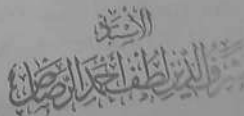 الأستاذ
شرف الدين لطف احمد الرصاص